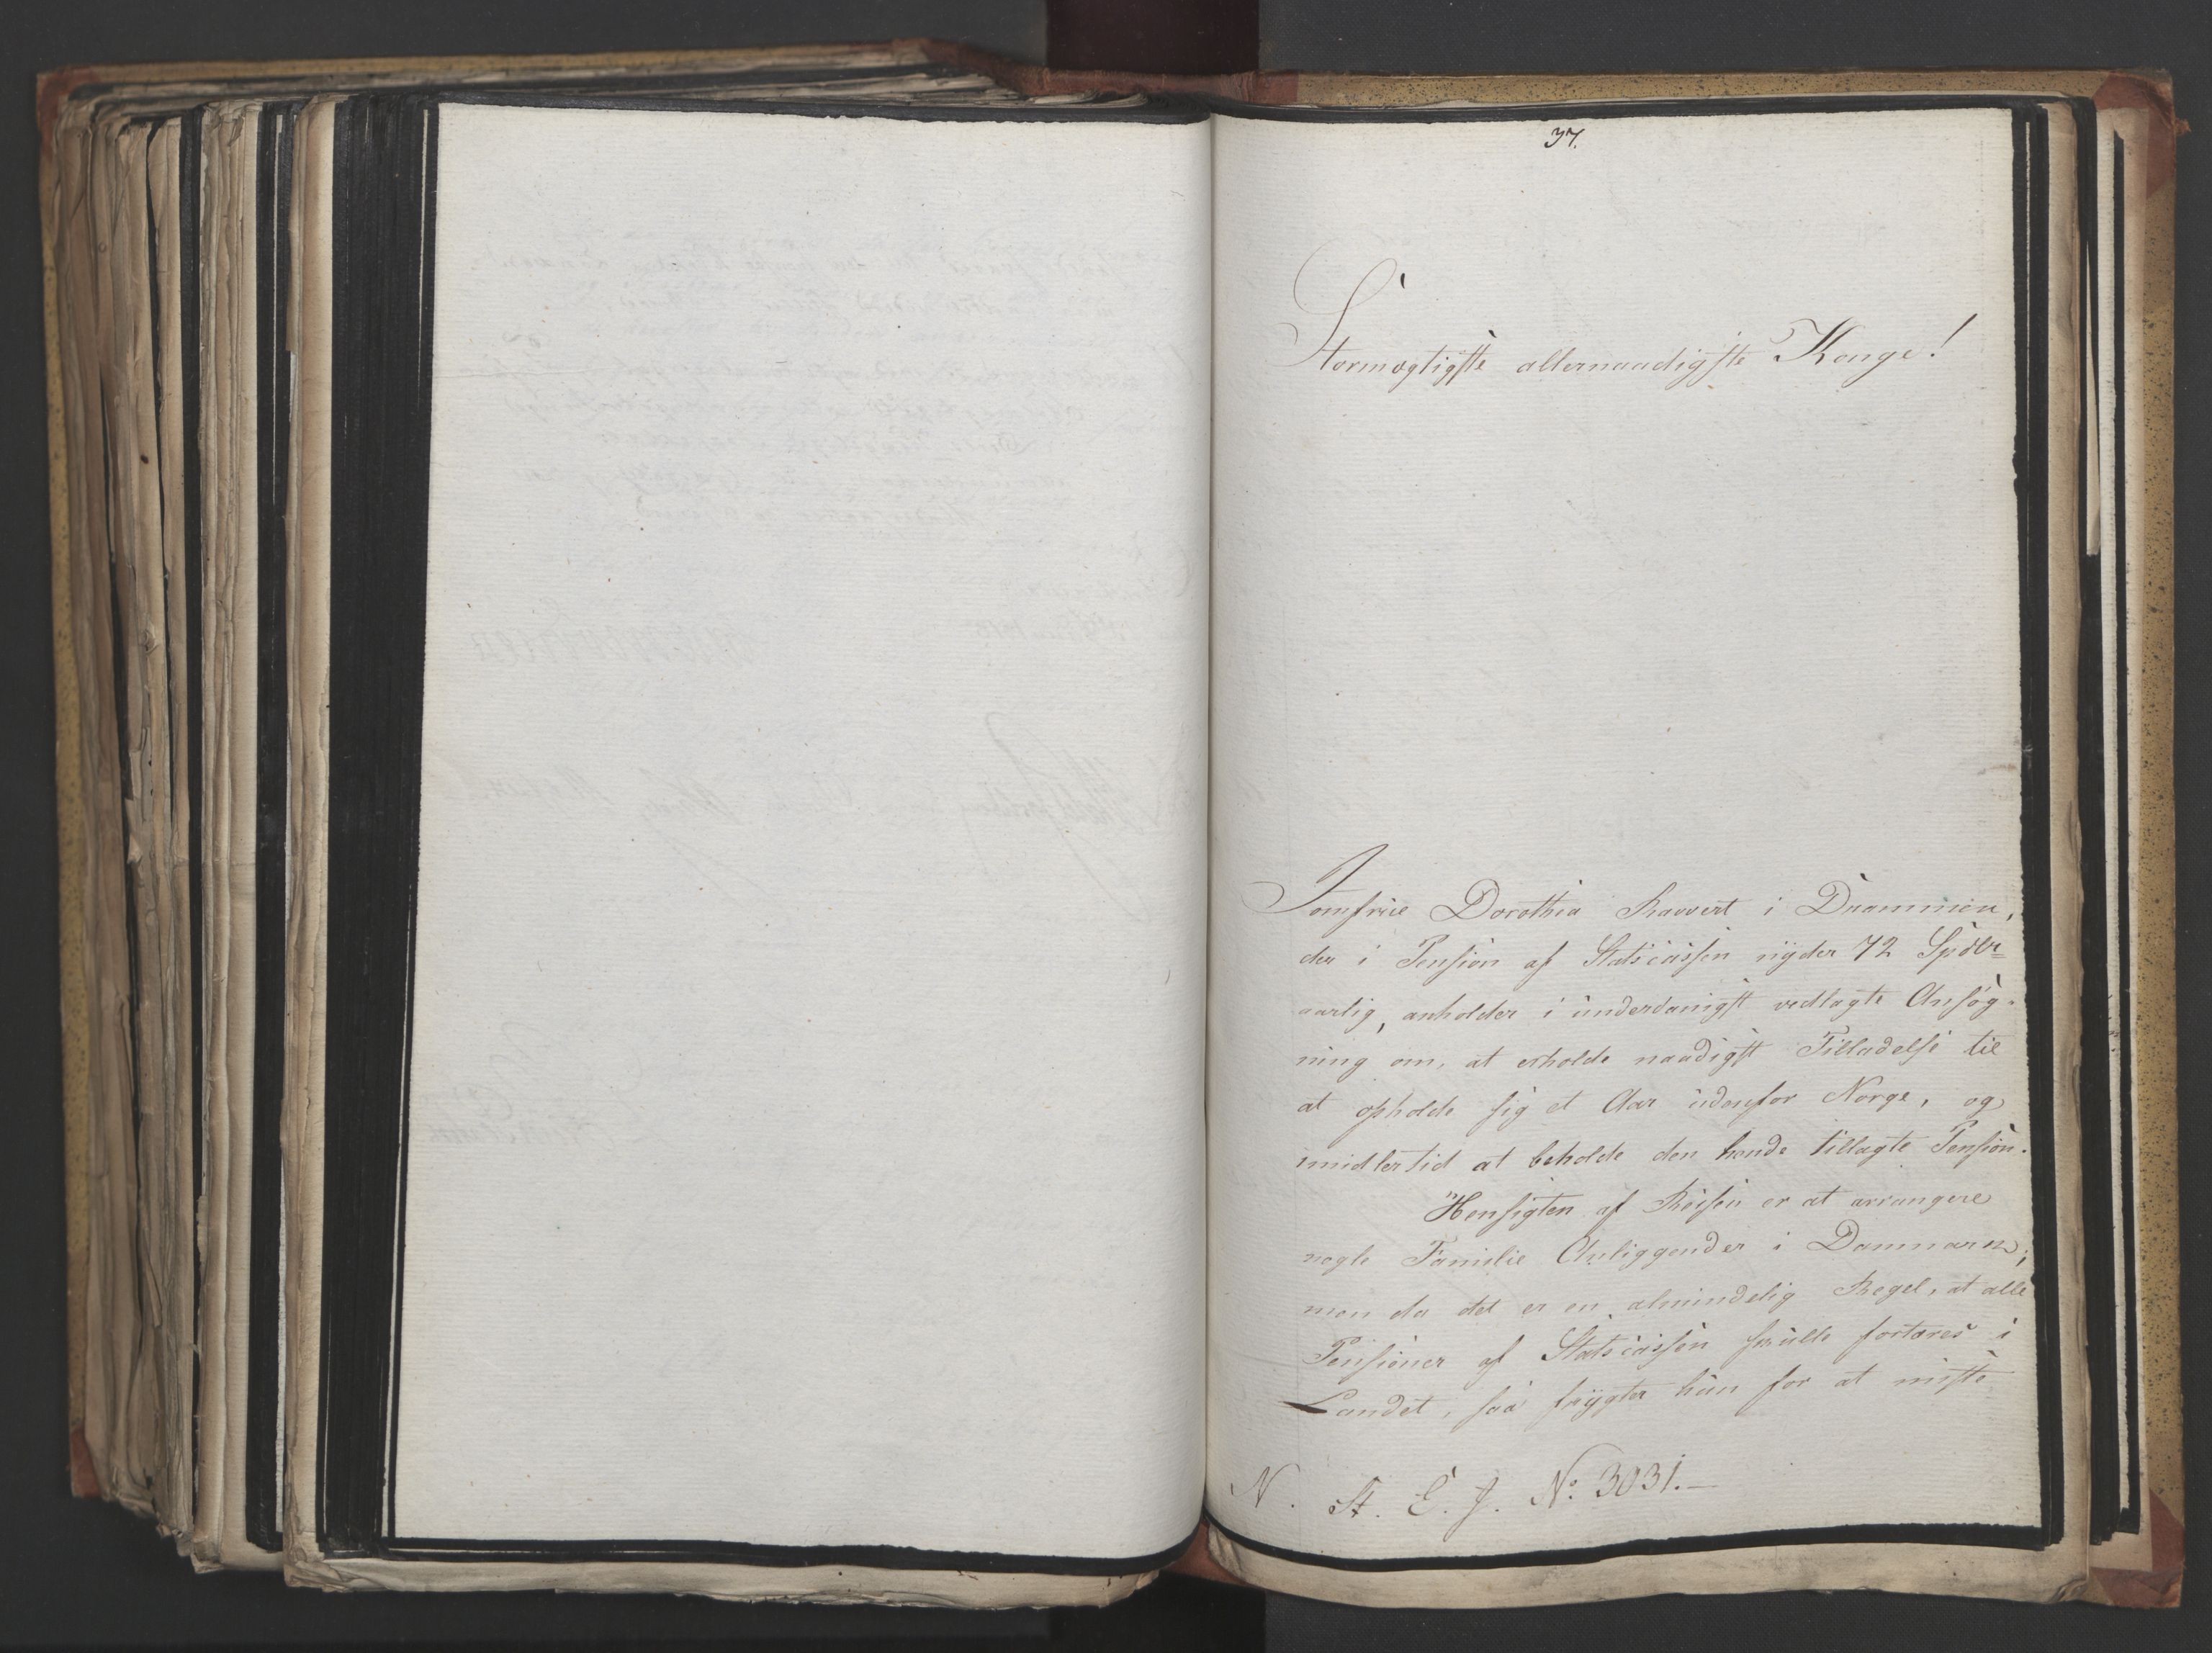 37.
Stormægtigste allernaadigste Konge!
Jomfrue Dorothea Ravert i Drammen,
der i Pension af Statscassen nyder 72 Spdlr=
aarlig, anholder i underdanigst vedlagte Ansøg-
ning om, at erholde naadigst Tilladelse til
at opholde sig et Aar udenfor Norge, og
imidlertid at beholde den hende tillagte Pension.
Hensigten af Reisen er at arrangere
nogle Familie Anliggender i Danmark;
men da det er en almindelig Regel, at alle
Pensioner af Statscassen skulle fortæres i
Landet, saa frygter hun for at miste
N. St. E. J. No. 3031.—